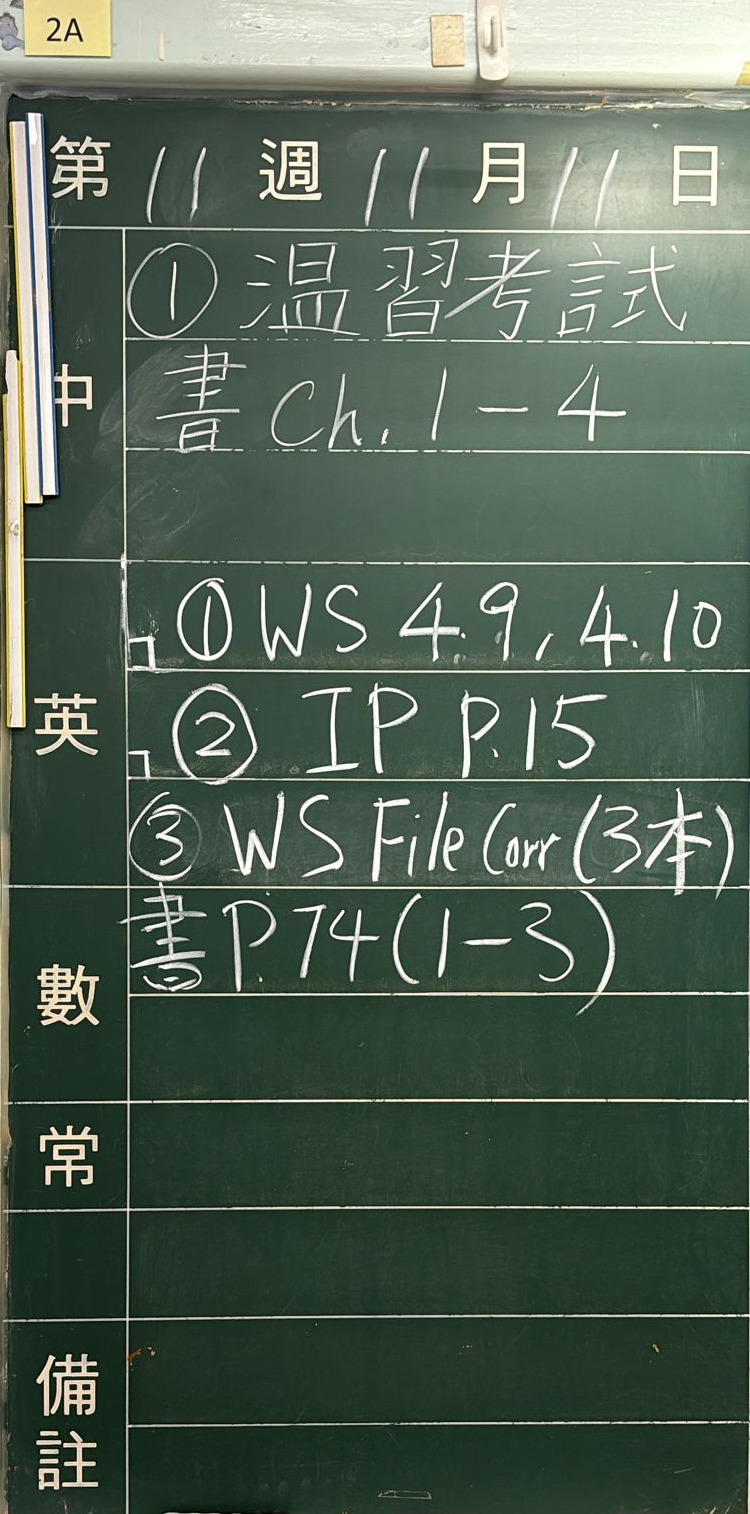 2A
第 11 週 11 月 11 日
中
① 温習考試
書 Ch. 1-4
英
① WS 4.9, 4.10
② IP P.15
③ WS File Corr (3本)
數
書 P.74 (1-3)
常
備註